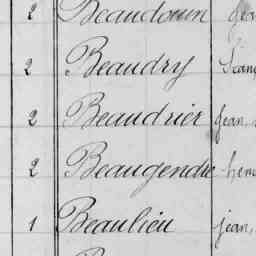 2 Beaudouin
2 Beaudry
2 Beaudrier Jean,
2 Beaugendre
1 Beaulieu jean,